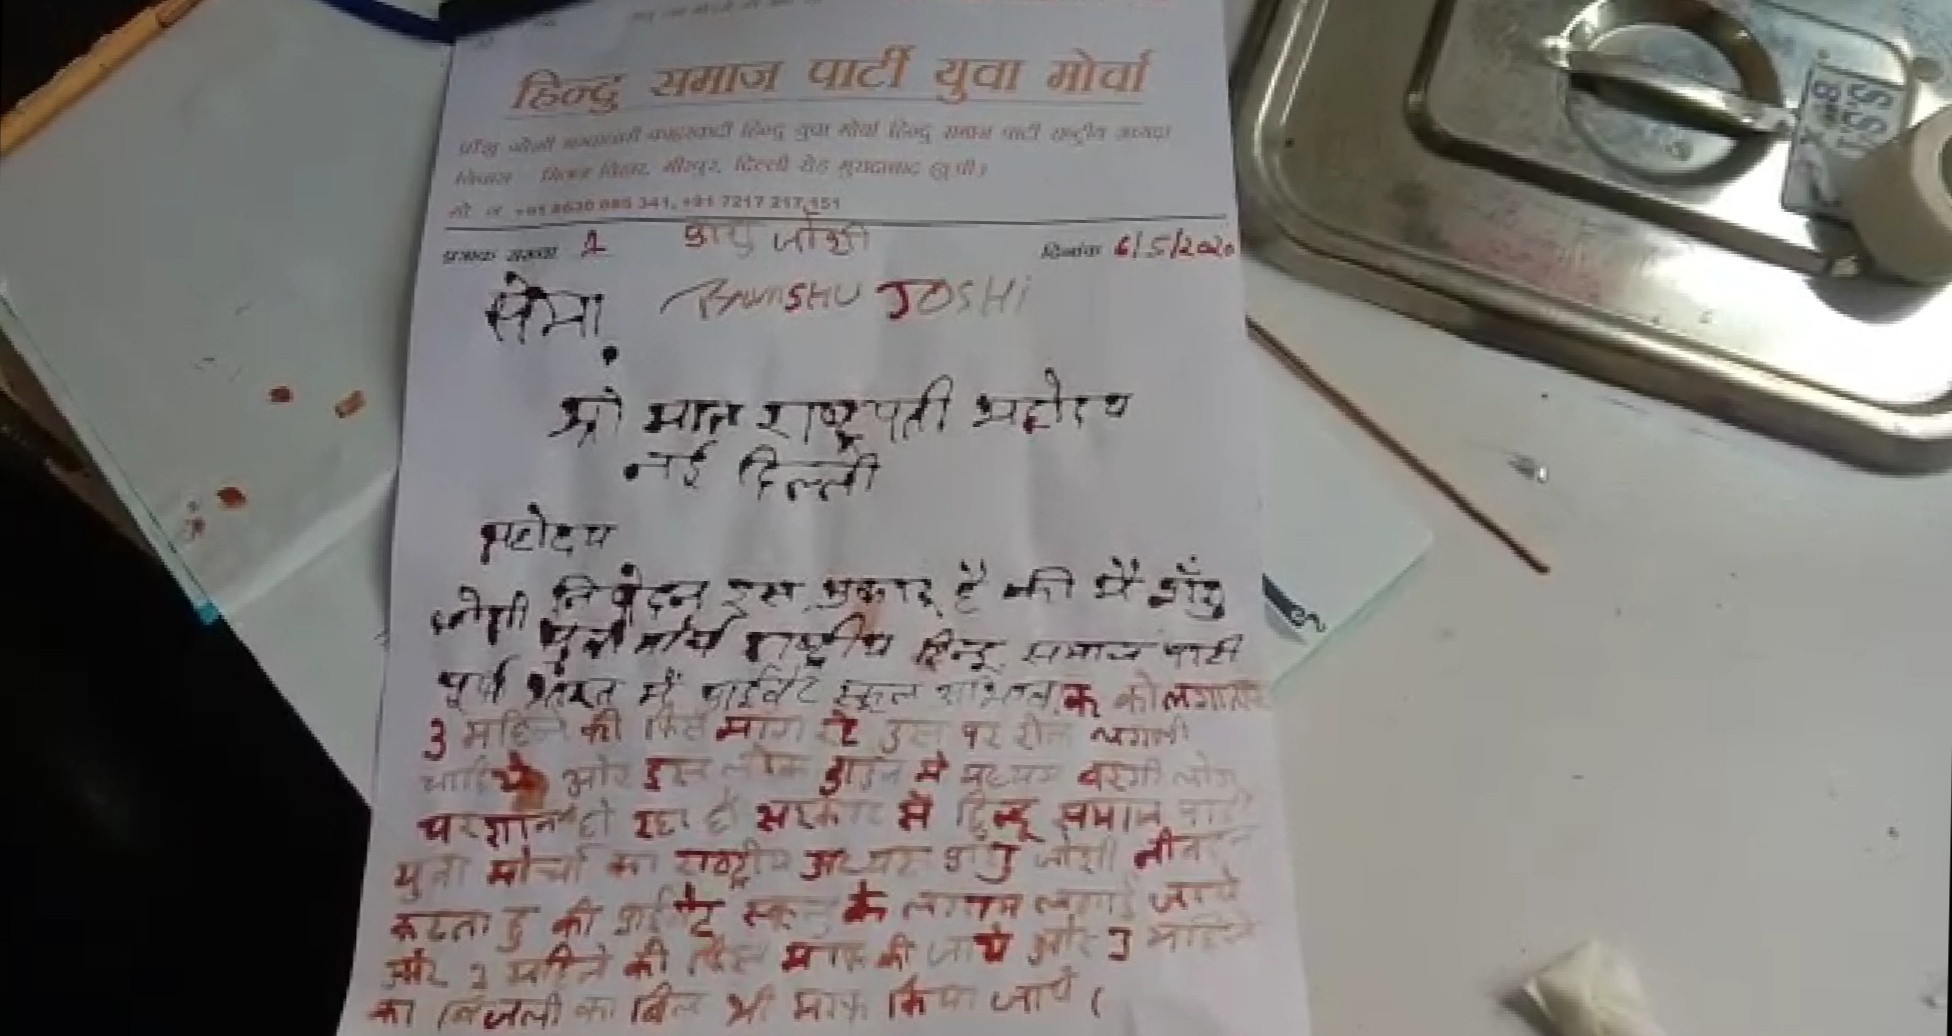 हिन्दु समाज पार्टी युवा मोर्चा
हिन्दु युवा मोर्चा हिन्दु समाज पार्टी राष्ट्रीय अध्यक्ष
निवास मिलन विहार, मीरपुर, दिल्ली रोड मुरादाबाद (यू.पी.)
मो. नं. +91 8630 885 341, +91 7217 217 151
पत्रांक संख्या 1 प्राशु जोशी दिनांक 6/5/2020
JOSHI
सेमा
श्री मान राष्ट्रपती महोदय
नई दिल्ली
महोदय
निवेदन इस प्रकार है की मैं प्राँशु
जोशी युवा मोर्चा राष्ट्रीय हिन्दू समाज पार्टी
पूर्ण भारत में प्राईवेट स्कूल को लगातार
3 महिने की फिस माग रहे उस पर रोक लगनी
चाहिये और इस लोक डाउन मे मध्यम वरगी लोग
परशान हो रहा है सरकार से हिन्दू समाज पार्टी
युवा मोर्चा का राष्ट्रीय अध्यक्ष प्राशु जोशी नीवदन
करता हु की प्राईवेट स्कूल के लगाम लगाई जाये
और 3 महिने की फिस माफ की जाये और 3 महिने
का बिजली का बिल भी माफ किया जाये (